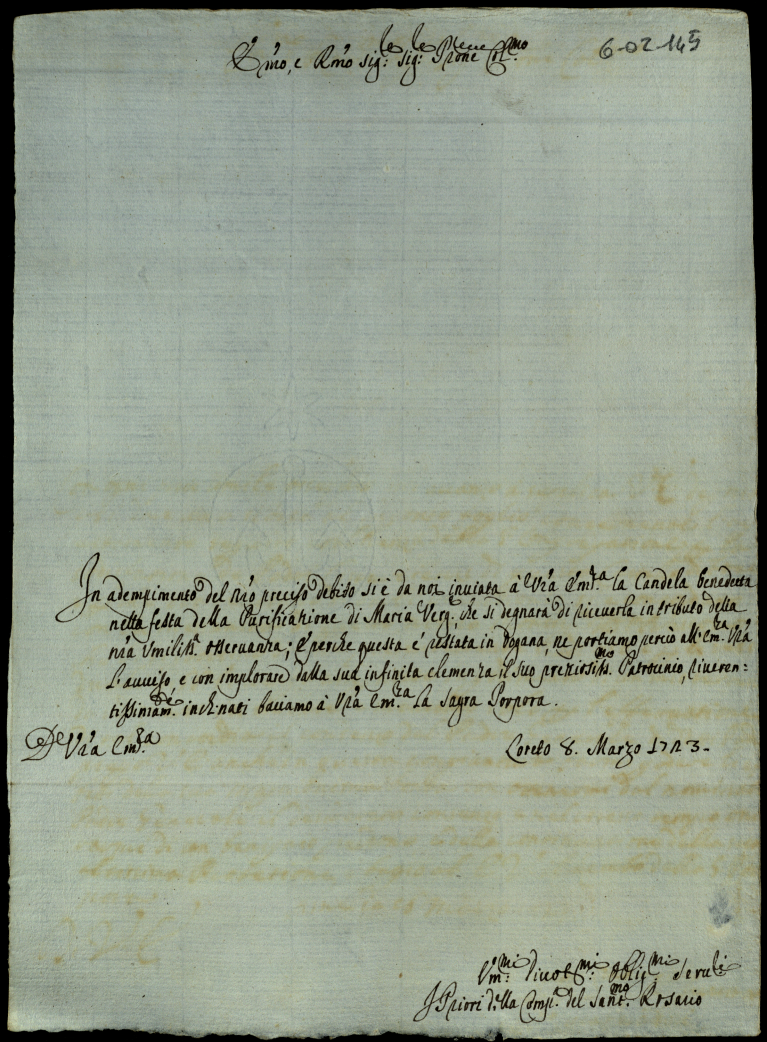 6-02-145
Em̃o, e Rm̃o sig:re sig:re Prone Col:mo
In adempimento del nr̃o preciso debito si è da noi inviata à Vr̃a Em:za la Candela benedetta
nella festa della Purificazione di Maria Verg:e, che si degnarà di riceverla in tributo della
nr̃a umiliss:a osservanza; E perche questa è restata in Dogana, ne portiamo perciò all'Em:za Vr̃a
l'avviso, e con implorare dalla sua infinita clemenza il suo preziosiss:mo Patrocinio, riveren=
tissimam:te inchinati baciamo à Vr̃a Em:za la Sagra Porpora.
Di Vr̃a Em:za
Loreto 8. Marzo 1723.
Um:mi Divot:mi Oblig:mi Servi
I Priori della Comp:a del Sant:mo Rosario